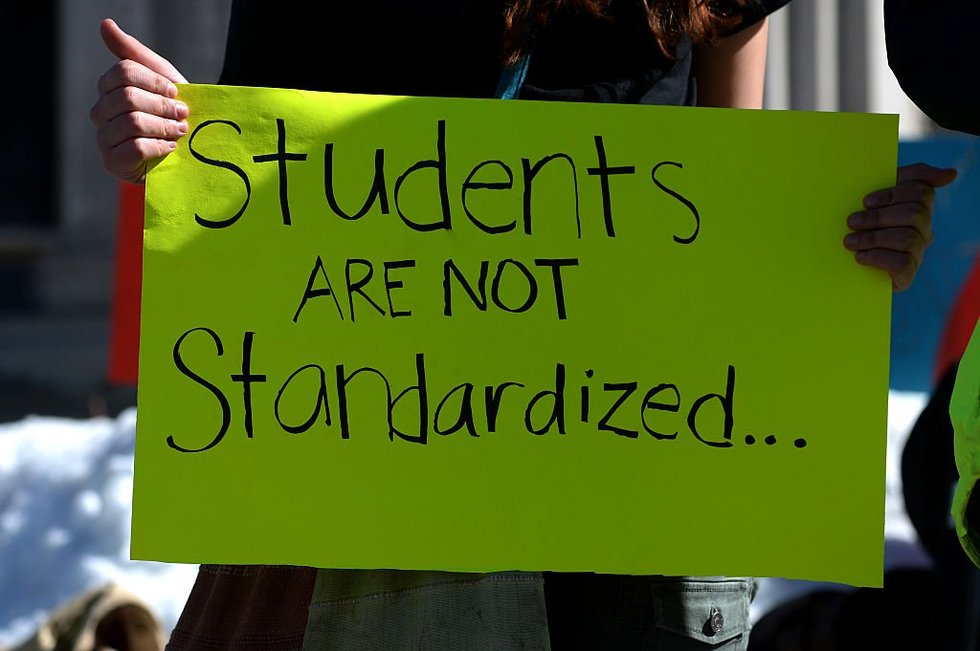 Students
ARE NOT
Standardized...